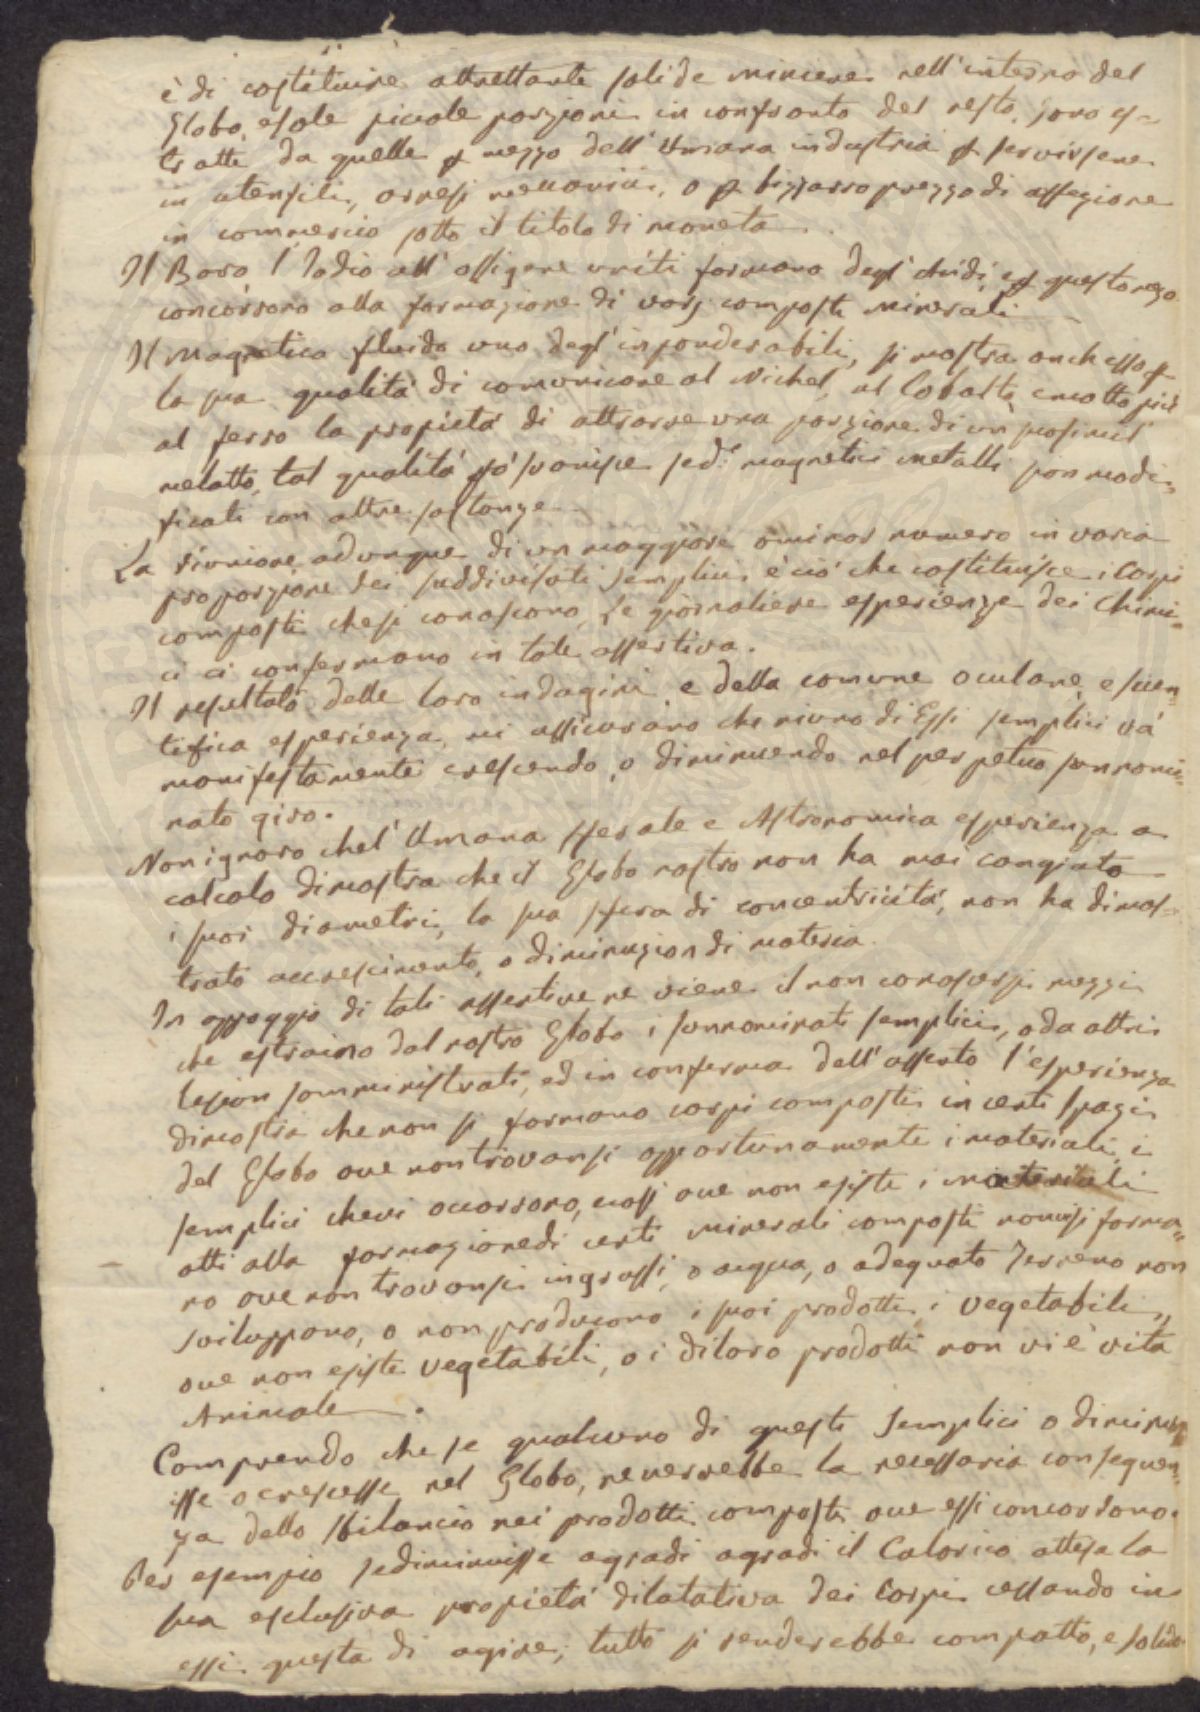 è di costituire altrettante solide miniere nell'interno del
Globo, e sole piccole porzioni in confronto del resto, sono es=
tratti da quelle p mezzo dell'Umana industria p servirsene
in utensili, arnesi meccanici, o p bizzarro prezzo di affezione
in commercio sotto il titolo di moneta.
Il Boro l'Iodio all'ossigene uniti formano degl'acidi, e p questo mezo
concorrono alla formazione di varj composti minerali
Il Magnetico fluido uno degl'inponderabili, si mostra anch'esso p
la sua qualità di comunicare al Nichel, al Cobalto, e molto più
al ferro la propietà di attrarre una porzione di un suo simil
metallo, tal qualità pò svanisce se dⁱ magnetici metalli son modi=
ficati con altre sostanze
La riunione adunque di un maggiore o minor numero in varia
proporzione dei suddivisati semplici è ciò che costituisce i Corpi
composti che si conoscono, Le giornaliere esperienze dei Chimi=
ci ci confermano in tale assertiva.
Il resultato delle loro indagini e della comune oculare, e scien
tifica esperienza, mi assicurano che niuno di Essi semplici và
manifestamente crescendo, o diminuendo nel perpetuo sunnomi=
nato giro.
Non ignoro che l'Umana sferale e Astronomica esperienza a
calcolo dimostra che il Globo nostro non ha mai cangiato
i suoi diametri, la sua sfera di concentricità, non ha dimos=
trato accrescimento, o diminuzion di materia.
In appoggio di tali assertive ne viene il non conoscersi mezzi
che estraino dal nostro Globo i sunnominati semplici, o da altri
lesion somministrati, ed in conferma dell'asserto l'esperienza
dimostra che non si formano corpi composti in certi spazi
del Globo ove non trovansi opportunamente i materiali, i
semplici che vi occorrono, così ove non esiste i materiali
atti alla formazione di certi minerali composti non vi si forma=
no ove non trovonsi ingrassi, o acqua, o adequato Terreno non
sviluppano, o non producono i suoi prodotti i vegetabili,
ove non esiste vegetabili, o i di loro prodotti non vi è vita
Animale.
Comprendo che se qualcuno di questi semplici o diminu
isse o crescesse nel Globo, ne verrebbe la necessaria conseguen
za dello sbilancio nei prodotti composti ove essi concorrono.
Per esempio se diminuisse a gradi a gradi il Calorico attesa la
sua esclusiva propietà dilatativa dei Corpi cessando in
essi questa di agire, tutto si renderebbe compatto, e solido